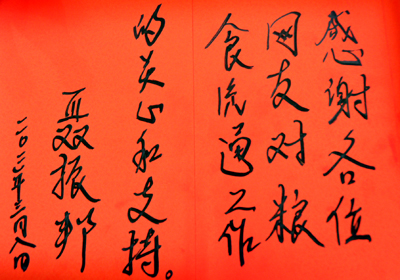 感谢各位
网友对粮
食流通工作
的关心和支持。
聂振邦
二〇一二年三月八日